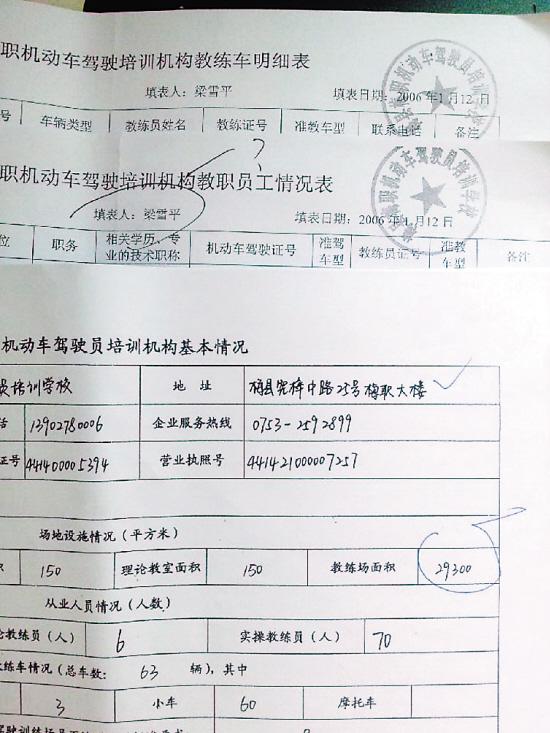 职机动车驾驶培训机构教练车明细表
填表人：梁雪平 填表日期：2006年1月12日
号 车辆类型 教练员姓名 教练证号 准教车型 联系电话 备注
职机动车驾驶培训机构教职员工情况表
填表人：梁雪平 填表日期：2006年1月12日
位 职务 相关学历、专业的技术职称 机动车驾驶证号 准驾车型 教练员证号 准教车型 备注
机动车驾驶员培训机构基本情况
员培训学校 地 址 梅县宪梓中路25号梅职大楼
话 13902780006 企业服务热线 0753-2592899
证号 441400005394 营业执照号 44142100007257
场地设施情况（平方米）
150 理论教室面积 150 教练场面积 29300
从业人员情况（人数）
论教练员（人） 6 实操教练员（人） 70
教练车情况（总车数： 63 辆），其中
3 小车 60 摩托车